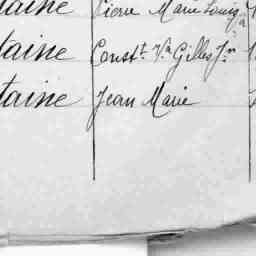 taine Pierre Marie Louis
taine Const.t V.a Gilles J.n
taine Jean Marie